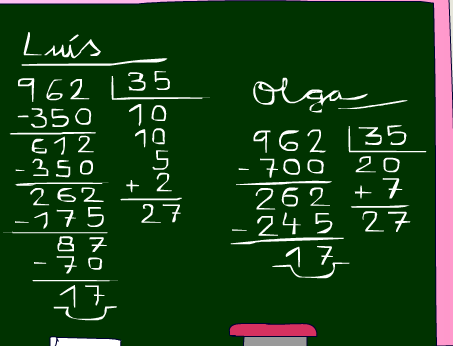 Luís
962 35
-350 10
612 10
-350 5
262 + 2
-175 27
87
-70
17
Olga
962 35
-700 20
262 + 7
-245 27
17